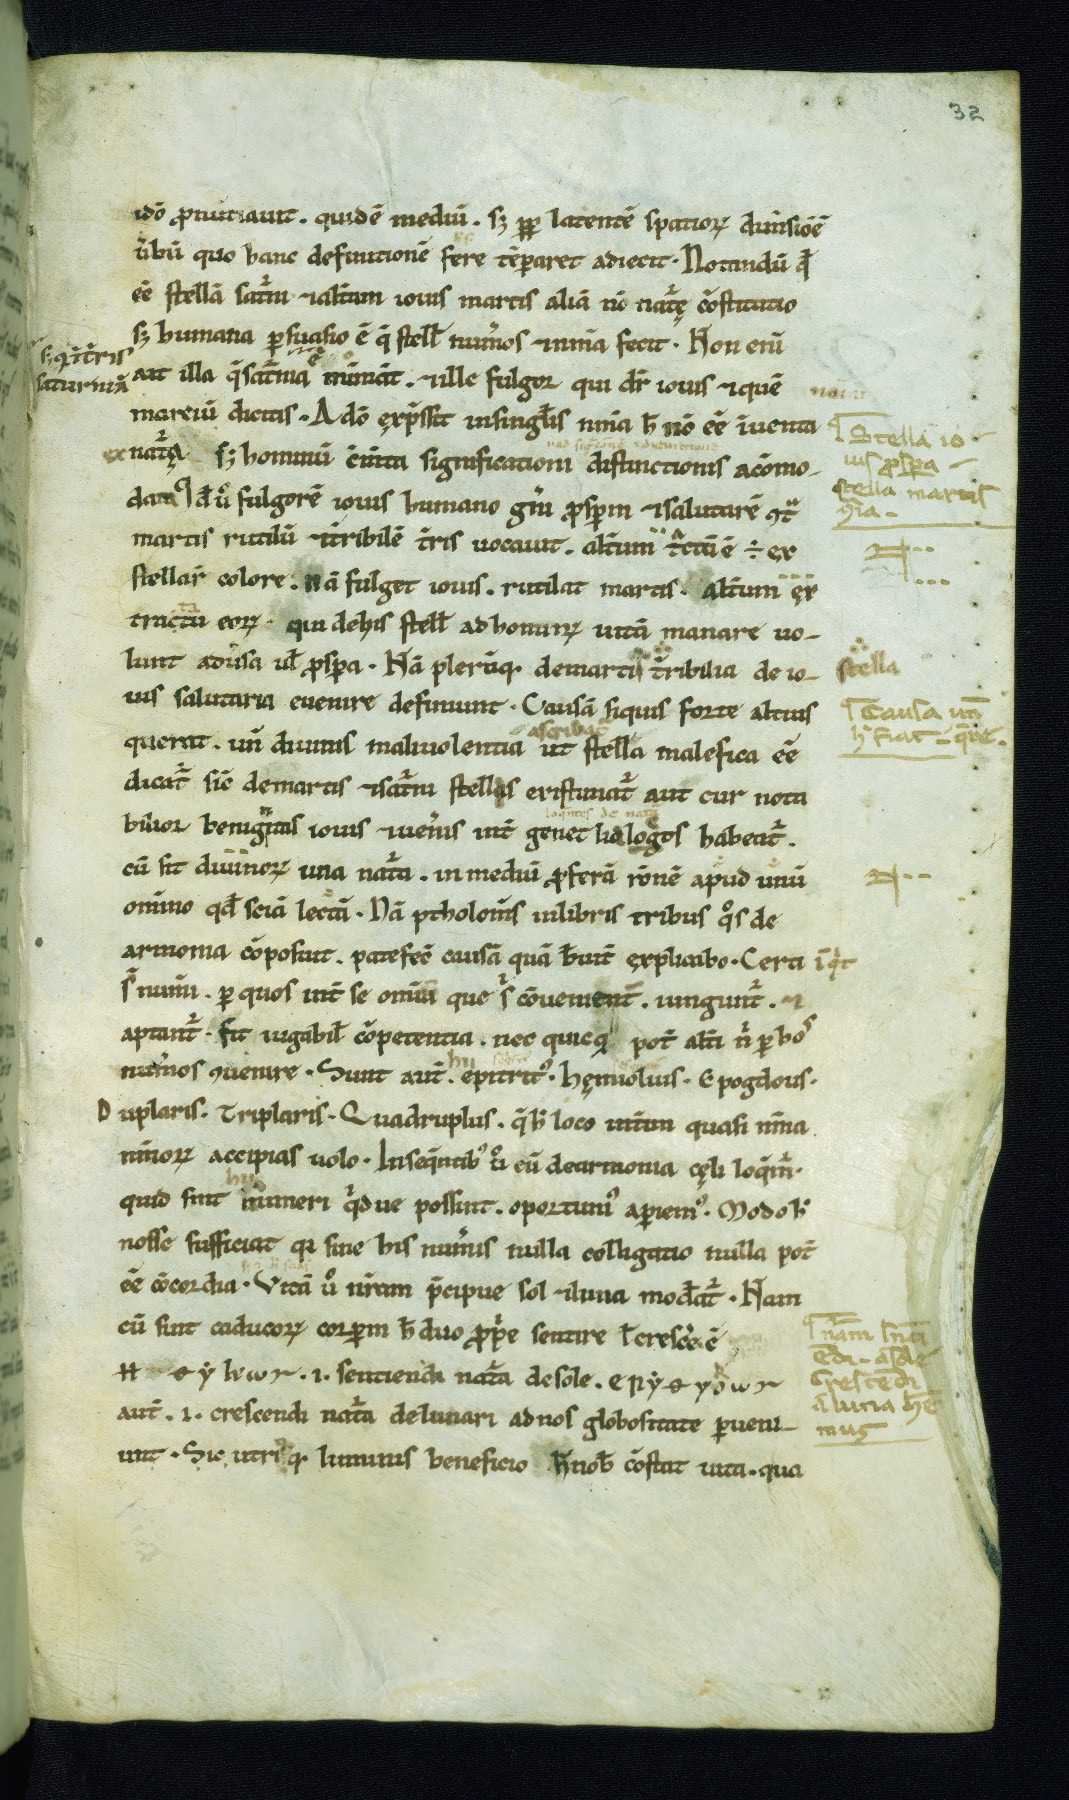 32
idō ꝓnunciauit. quidē mediū. sꝫ ꝓpꝑ latentē spatioꝝ dimsiōē
ūbū quo hanc definitionē fere tēꝑaret adiecit. Notandū qđ
eē stellā satͬni ⁊ altam iouis martis aliā nō natͬę cōstitutio
sꝫ humana ꝑsuasio ē q̄ stelł num̓os ⁊ noīa fecit. Non enī
ait illa q̄ satͬnia ⁊ ille fulgor qui dr̄ iouis ⁊ quē
marciū dicitis. Adō exp̄ssit insingl̄is noīa h̄ nō eē īuenta
natͬa sꝫ hominū cōmta significationi distinctionis acōmo-
data qđ ū̊ fulgorē iouis humano gn̄i ꝓspm̄ ⁊ salutarē ꝯtͣ
martis rutilū ⁊ tr̄ribilē tr̄is uocauit. altum tͣctū ē ÷ ex
stellaꝝ colore. nā fulget iouis. rutilat martis. altum ex
tractū eoꝝ qui dehis stelł ad hominū uitā manare uo-
lunt adūsa uł ꝓspa. Nā plerūqꝫ demartis tr̄ribilia de io-
uis salutaria euenire definiunt. Causā siquis forte altius
querat. un̄ diuinis maliuolentia ut stella malefica eē
dicatͬ sic̄ demartis ⁊ satͬni stellis existimatͬ aut cur nota
bilior benignitas iouis ⁊ uen̓is int̄ genet lialogos habeatͬ.
cū sit diuinoꝝ una natͬa. in mediū ꝓferā rōnē apud unū
omīno qđ sciā lectā. Nā ptholom̄s inlibris tribus qͦs de
armonia cōposuit. patefec̄ causā quā breuit̄ explicabo. Certi
s̄ num̄i. ꝑ quos int̄ se omīa que s̄ cōuenient̄. iungunt̄. ⁊
aptantͬ. fit iugabił cōpetentia. nec quicqͣ pot̄ alt̄i n̄ ꝑ hos
num̓os ꝯuenire. Sunt aut̄. epitritꝰ. hęmiolius. Epogdous.
Duplaris. Triplaris. Quadruplus. q̄ h̄ loco int̄im quasi noīa
num̄oꝝ accipias uolo. Inseq̄ntibꝰ ū̊ cū dearmonia cęli loq̄m̄.
quid sint numeri qͥdue possint. oportuniꝰ aꝑiemꝰ. Modo h̄
nosse sufficiat qꝛ sine his num̓is nulla colligatio nulla pot̄
eē cōcordia. Vitā ū̊ nr̄am p̄cipue sol ⁊ luna modatͬ. Nam
cū sint caducoꝝ corꝑm h̄ duo ꝓp̄e sentire ł cresc̄e ē
.i. sentiendi natͬa desole.
aut̄. .i. crescendi natͬa delunari ad nos globositate ꝑueni-
unt. Sic utriꝰqꝫ luminis beneficio h̄ nob̄ cōstat uita. qua
saturniā
¶ Stella io-
uis ꝓspa-
stella martis
stella
¶ Causa un̄
h̄ fiat
¶ nam sn̄ti
ēdi a sole
crescēdi
a luna hē
mus
ascribat̄